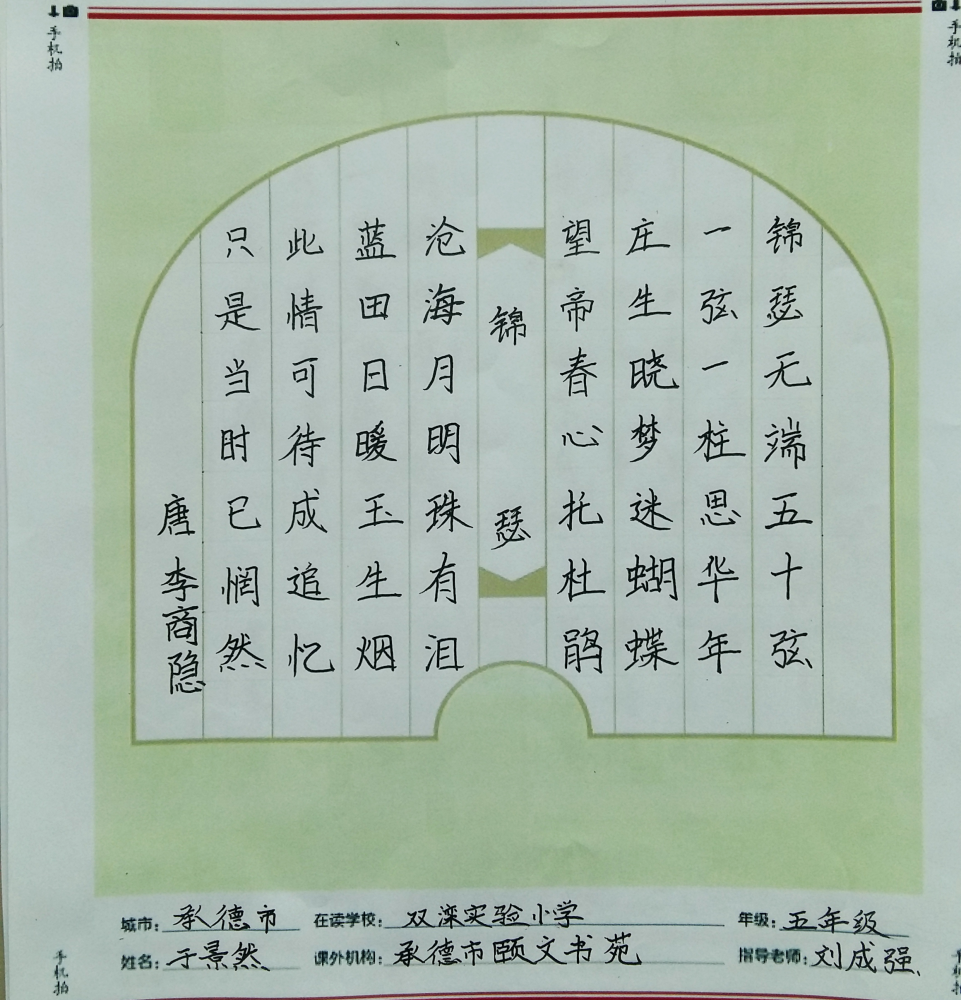 手机拍
手机拍
锦瑟无端五十弦
一弦一柱思华年
庄生晓梦迷蝴蝶
望帝春心托杜鹃
锦瑟
沧海月明珠有泪
蓝田日暖玉生烟
此情可待成追忆
只是当时已惘然
唐李商隐
城市：承德市 在读学校：双滦实验小学 年级：五年级
姓名：于景然 课外机构：承德市颐文书苑 指导老师：刘成强
手机拍
手机拍